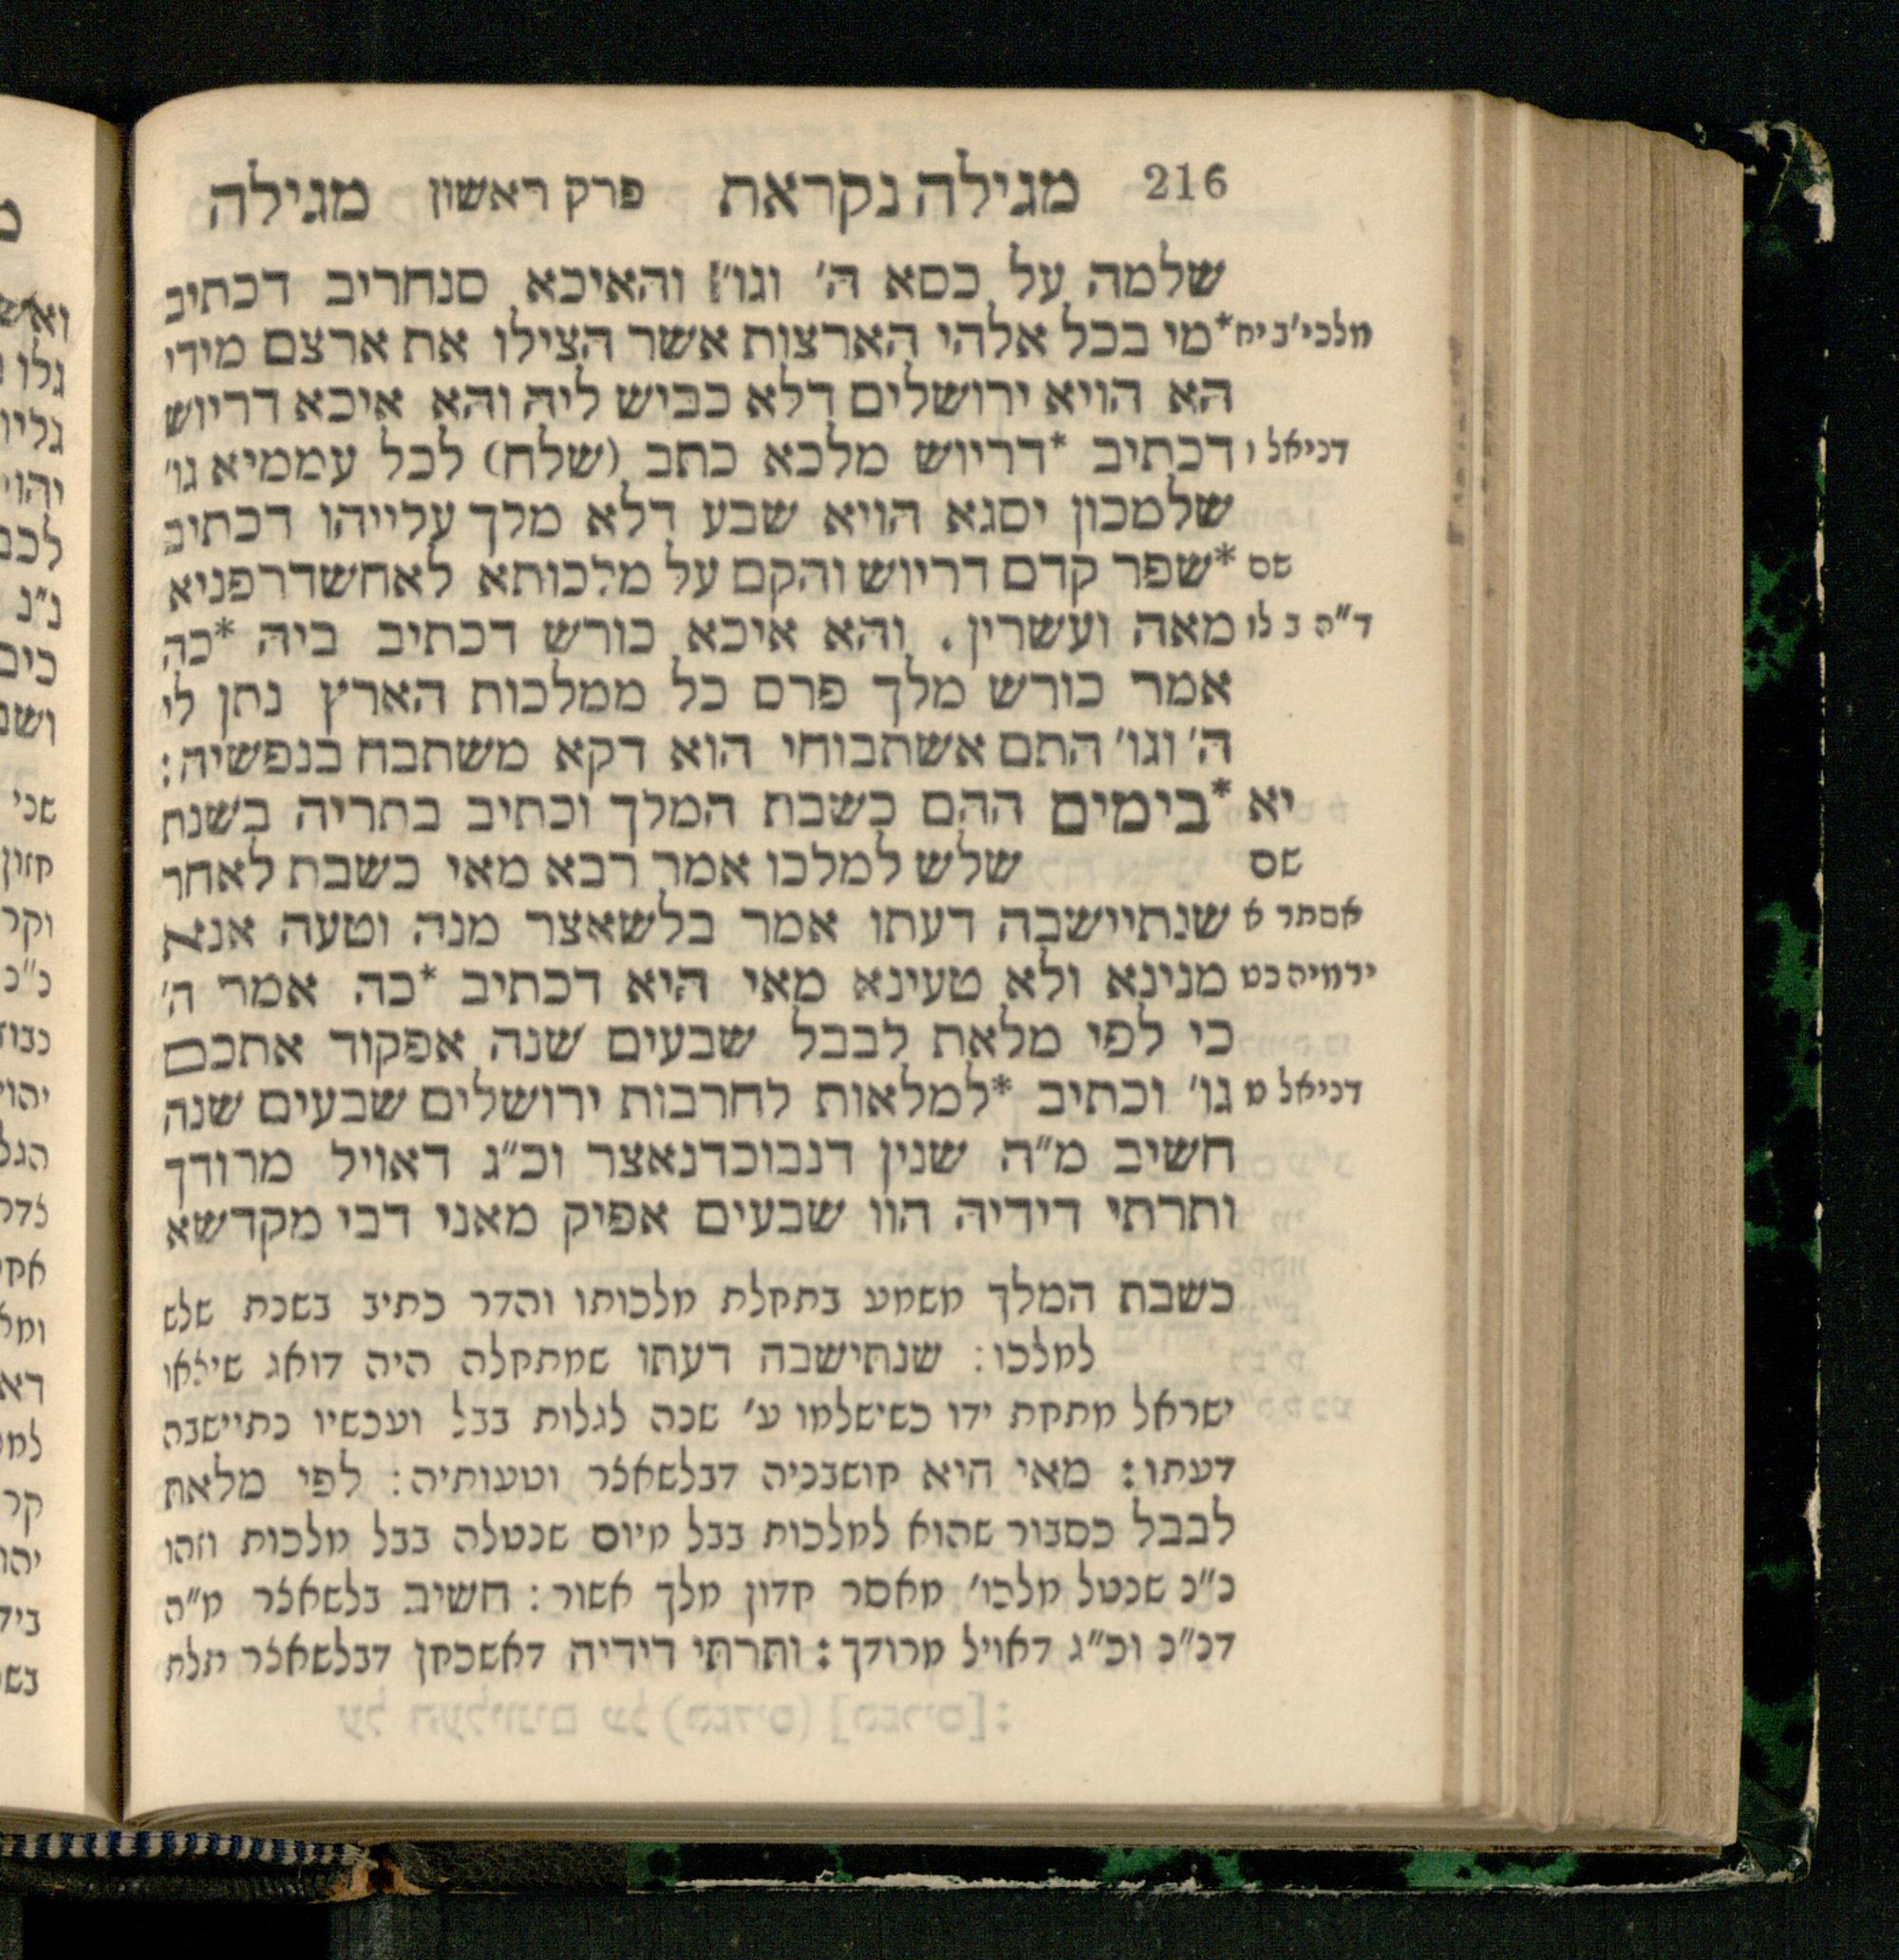 216 מגילה נקראת פרק ראשון מגילה
שלמה על כסא ה' וגו'] והאיכא סנחריב דכתיב
מלכי' ב יח *מי בכל אלהי הארצות אשר הצילו את ארצם מידי
הא הויא ירושלים דלא כביש ליה והא איכא דריוש
דניאל ו דכתיב *דריוש מלכא כתב (שלח) לכל עממיא גו'
שלמכון יסגא הויא שבע דלא מלך עלייהו דכתיב
שם *שפר קדם דריוש והקם על מלכותא לאחשדרפניא
ד"ה ב לו מאה ועשרין. והא איכא כורש דכתיב ביה *כה
אמר כורש מלך פרס כל ממלכות הארץ נתן לי
ה' וגו' התם אשתבוחי הוא דקא משתבח בנפשיה:
יא *בימים ההם כשבת המלך וכתיב בתריה בשנת
שם שלש למלכו אמר רבא מאי כשבת לאחר
אסתר א שנתיישבה דעתו אמר בלשאצר מנה וטעה אנא
ירמיה כט מנינא ולא טעינא מאי היא דכתיב *כה אמר ה'
כי לפי מלאת לבבל שבעים שנה אפקוד אתכם
דניאל ט גו' וכתיב *למלאות לחרבות ירושלים שבעים שנה
חשיב מ"ה שנין דנבוכדנאצר וכ"ג דאויל מרודך
ותרתי דידיה הוו שבעים אפיק מאני דבי מקדשא
כשבת המלך משמע בתחלת מלכותו והדר כתיב בשנת שלש
למלכו: שנתישבה דעתו שמתחלה היה דואג שיצאו
ישראל מתחת ידו כשישלמו ע' שנה לגלות בבל ועכשיו נתיישבה
דעתו: מאי היא חושבניה דבלשאצר וטעותיה: לפי מלאת
לבבל כסבור שהוא למלכות בבל מיום שנטלה בבל מלכות וזהו
נ"נ שנטל מלכו' מאסר חדון מלך אשור: חשיב בלשאצר מ"ה
דנ"נ וכ"ג דאויל מרודך: ותרתי דידיה דאשכחן דבלשאצר תלת